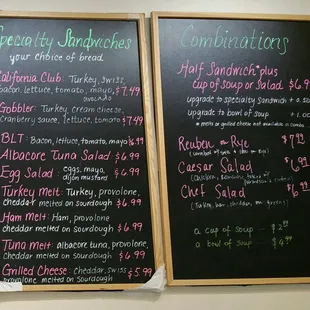 Specialty Sandwiches
your choice of bread
California Club: Turkey, swiss
bacon, lettuce, tomato, mayo, $7.49
avocado
Gobbler: Turkey, cream cheese,
cranberry sauce, lettuce, tomato $7.49
BLT: Bacon, lettuce, tomato, mayo $6.99
Albacore Tuna Salad $6.99
Egg Salad: eggs, mayo, $6.99
dijon mustard
Turkey melt: Turkey, provolone,
cheddar melted on sourdough $6.99
Ham melt: Ham, provolone
cheddar melted on sourdough $6.99
Tuna melt: albacore tuna, provolone,
cheddar melted on sourdough $6.99
Grilled Cheese: cheddar, swiss $5.99
provolone melted on Sourdough
Combinations
Half Sandwich plus
cup of Soup or Salad $6.99
upgrade to specialty sandwich +
upgrade to bowl of soup + 1.00
* melts or grilled cheese not available in combo
Reuben on Rye $7.99
Caesar Salad $6.99
Chef Salad $6.99
a cup of soup $2.99
a bowl of soup $4.99